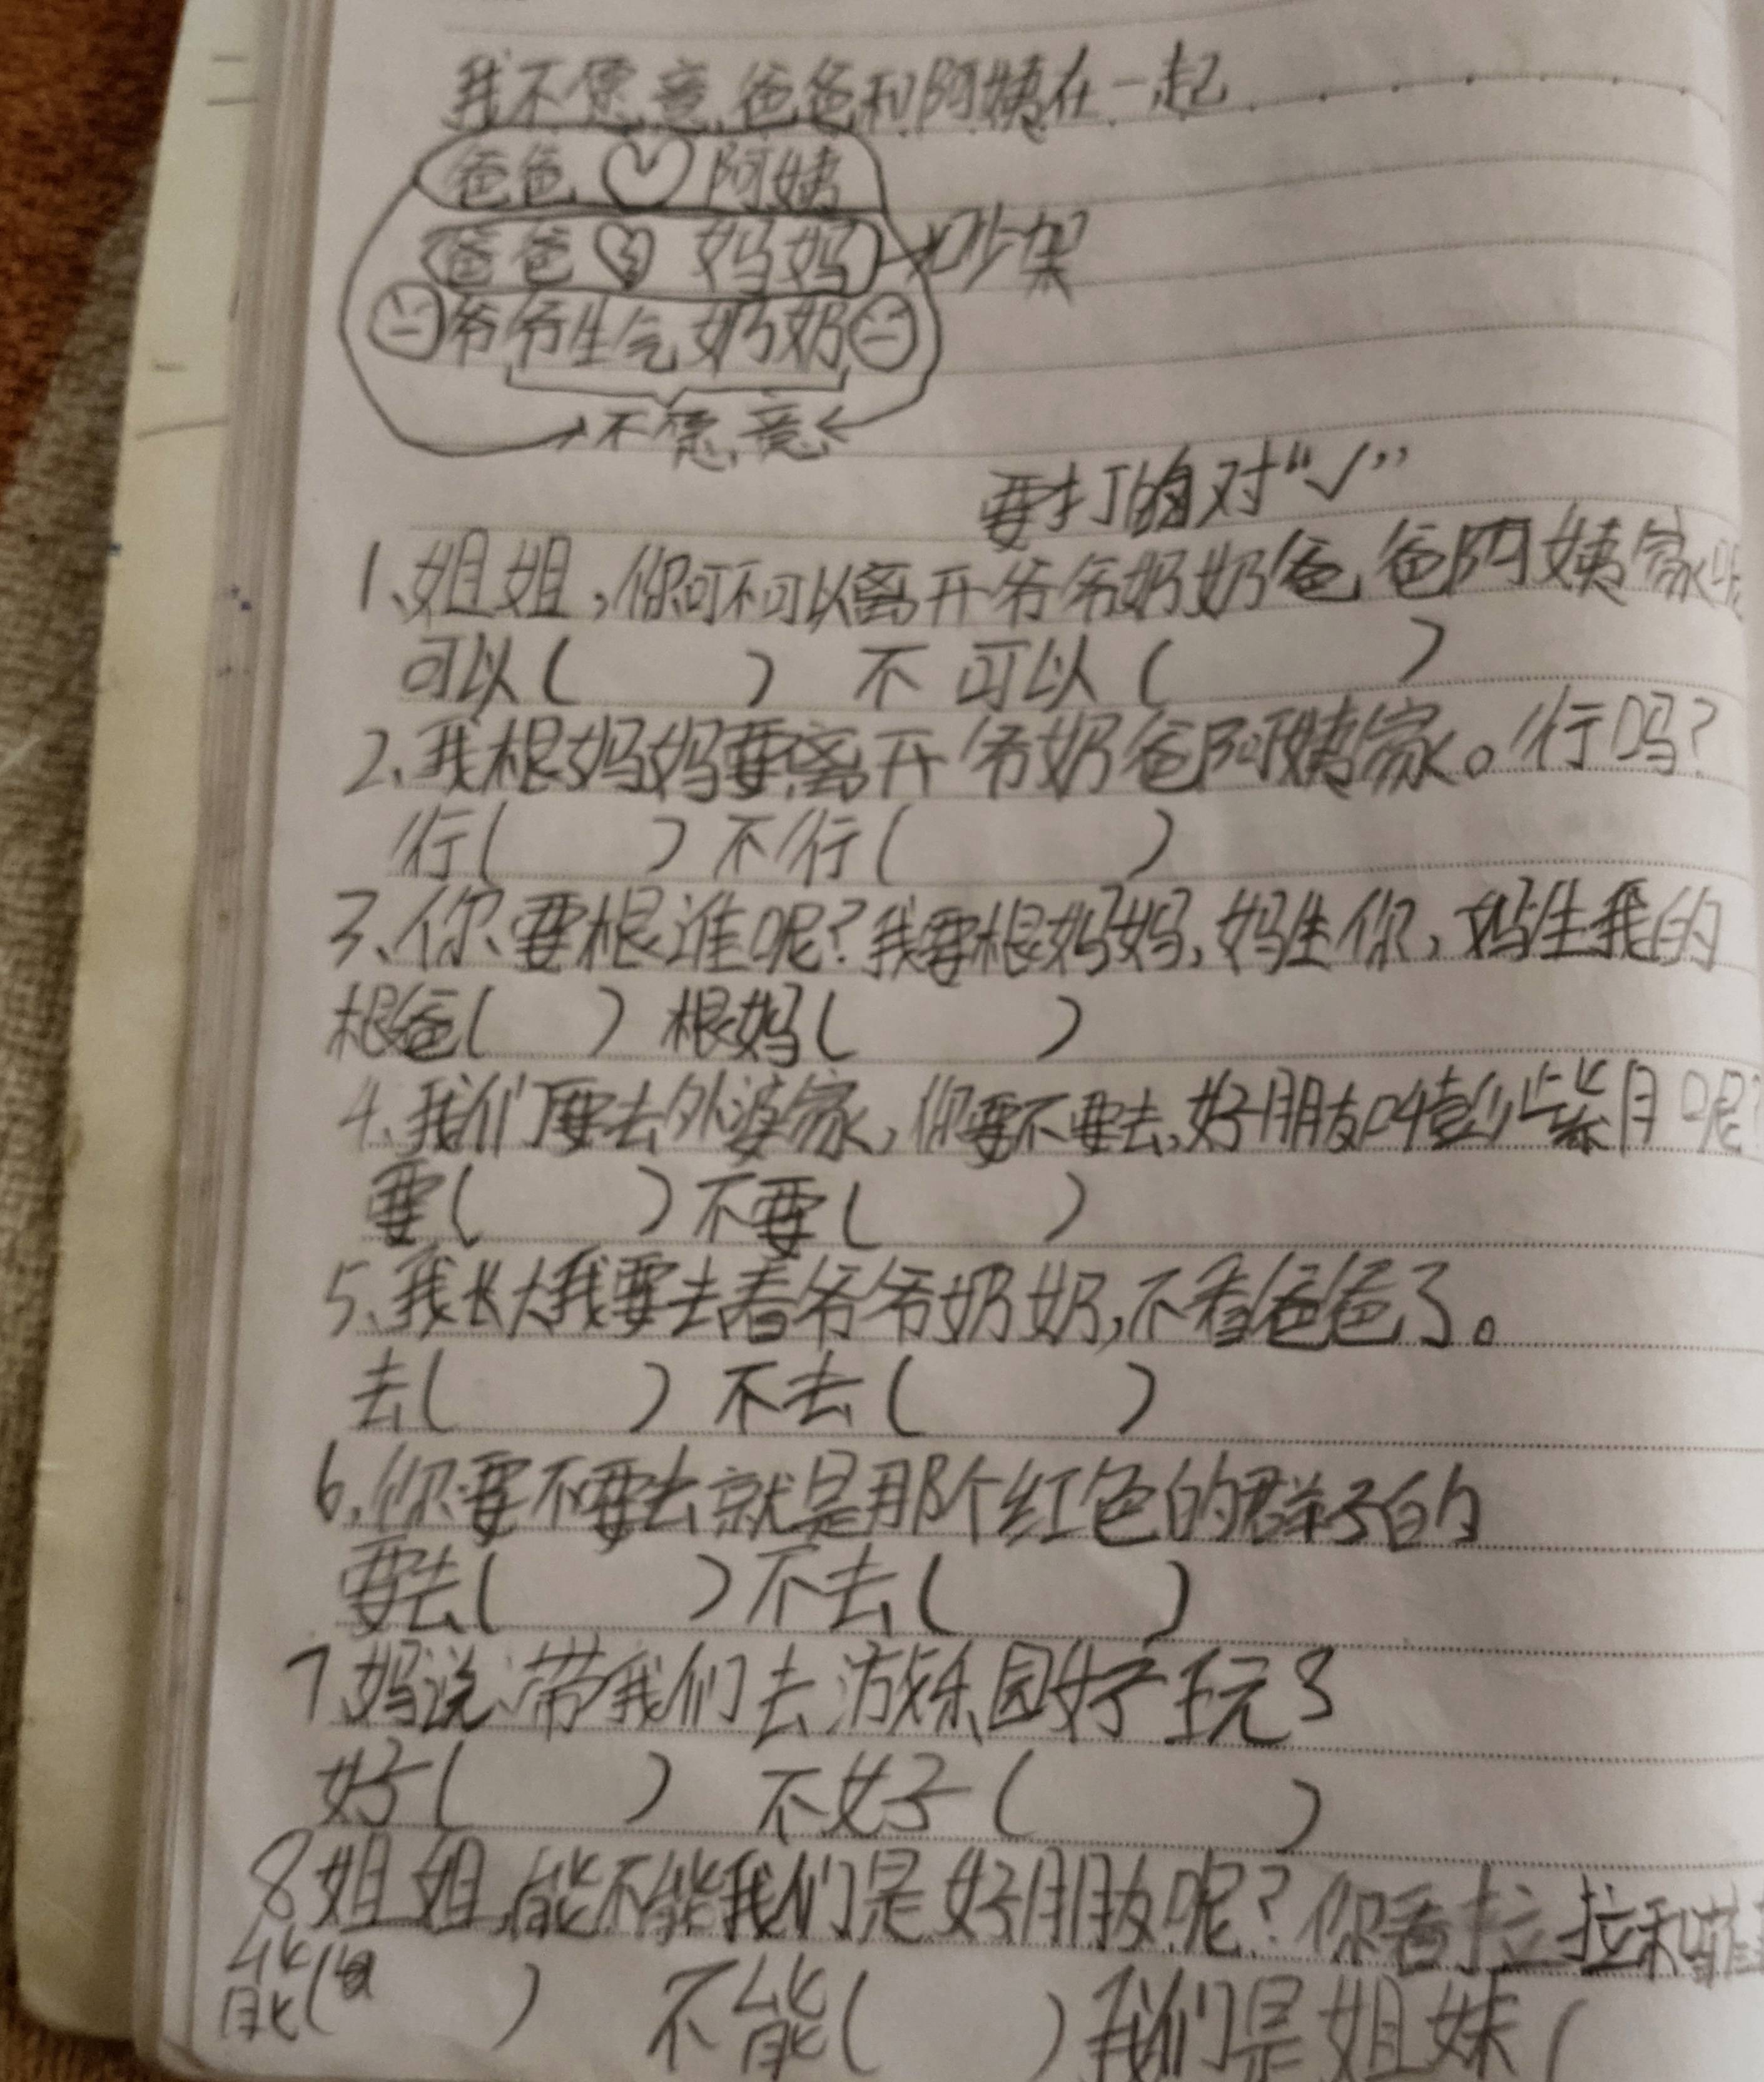 我不愿意爸爸和阿姨在一起
爸爸 阿姨
爸爸 妈妈 吵架
爷爷生气奶奶
不愿意
要打的对“√”
1、姐姐,你可不可以离开爷爷奶奶爸爸阿姨家呢
可以( ) 不可以( )
2、我根妈妈要离开爷奶爸阿姨家。行吗?
行( ) 不行( )
3、你要根谁呢?我要根妈妈,妈生你,妈生我的
根爸( ) 根妈( )
4、我们要去外婆家,你要不要去,好朋友叫彭紫月呢
要( ) 不要( )
5、我长大我要去看爷爷奶奶,不看爸爸了。
去( ) 不去( )
6、你要不要去就是那个红色的群子的
要去( ) 不去( )
7、妈说带我们去游乐园好玩了
好( ) 不好( )
8姐姐,能不能我们是好朋友呢?你看拉拉和
能( ) 不能( ) 我们是姐妹(